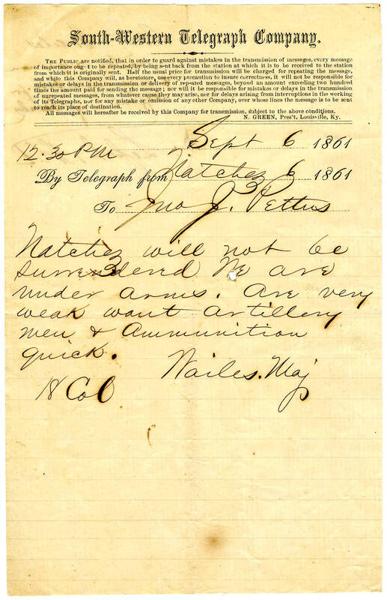 South-Western Telegraph Company.
THE PUBLIC are notified, that in order to guard against mistakes in the transmission of messages, every message
of importance ought to be repeated, by being sent back from the station at which it is to be received to the station
from which it is originally sent. Half the usual price for transmission will be charged for repeating the message,
and while this Company will, as heretofore, use every precaution to insure correctness, it will not be responsible for
mistakes or delays in the transmission or delivery of repeated messages, beyond an amount exceeding two hundred
times the amount paid for sending the message; nor will it be responsible for mistakes or delays in the transmission of
unrepeated messages, from whatever cause they may arise, nor for delays arising from interruptions in the working
of its Telegraphs, nor for any mistake or omission of any other Company, over whose lines the message is to be sent
to reach its place of destination.
All messages will hereafter be received by this Company for transmission, subject to the above conditions.
N. GREEN, Pres't, Louisville, Ky.
12.30 PM Sept 6 1861
By Telegraph from Natchez 6 1861
To Jno J. Pettus
Natchez will not be
surrendered We are
under arms. Are very
weak want artillery
men & Ammunition
quick.
Wailes. Maj